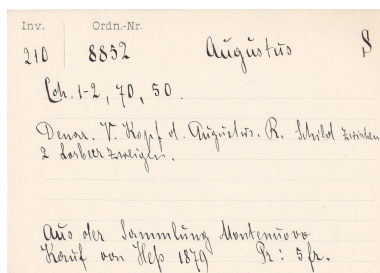 Inv. Ordn.-Nr.
210 8852 Augustus
Coh. 1-2, 70, 50.
Denar. V. Kopf d. Augustus. R. Schild zwischen
2 Lorbeerzweigen.
Aus der Sammlung Montenuovo
Kauf von Heß 1879 Pr: 5 fr.